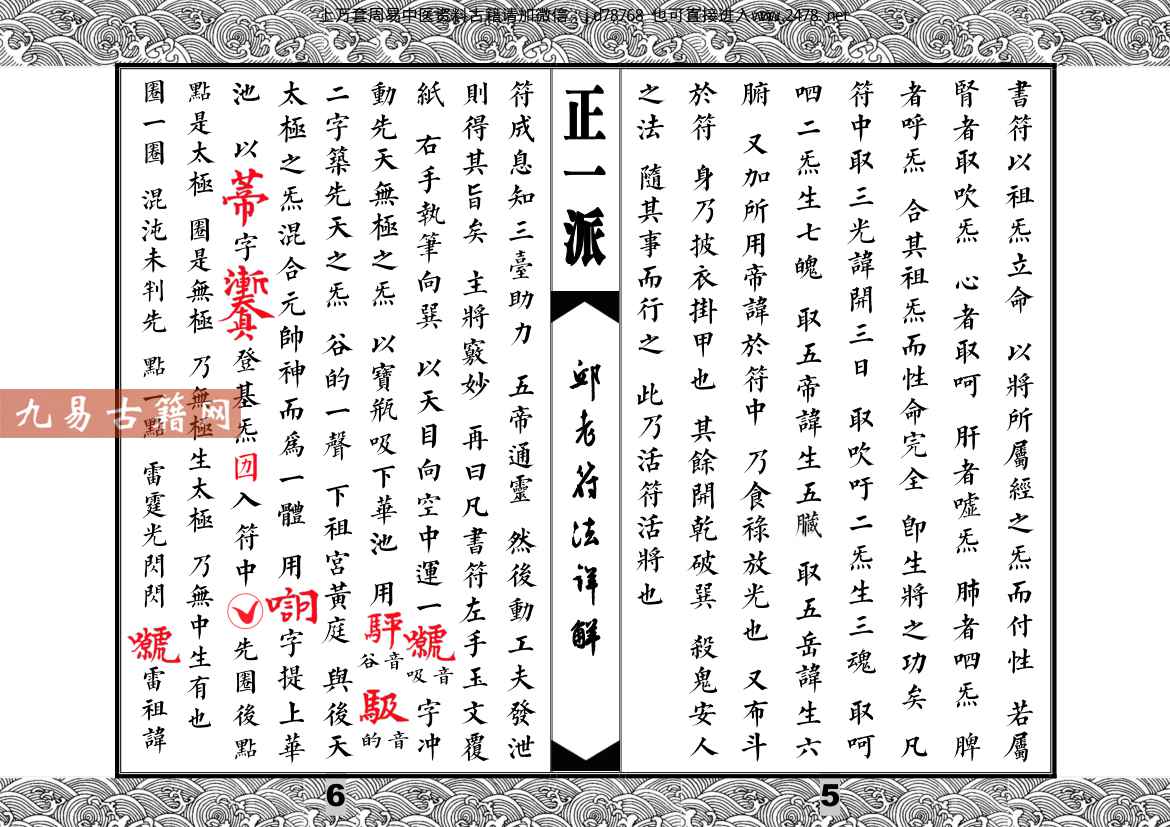 上万套周易中医资料古籍请加微信：jd78768 也可直接进入www.2478.net
書符以祖炁立命 以將所屬經之炁而付性 若屬
腎者取吹炁 心者取呵 肝者噓炁 肺者呬炁 脾
者呼炁 合其祖炁而性命完全 卽生將之功矣 凡
符中取三光諱開三日 取吹吁二炁生三魂 取呵
呬二炁生七魄 取五帝諱生五臟 取五岳諱生六
腑 又加所用帝諱於符中 乃食祿放光也 又布斗
於符 身乃披衣掛甲也 其餘開乾破巽 殺鬼安人
之法 隨其事而行之 此乃活符活將也
正一派
邱老符法详解
符成息知三臺助力 五帝通靈 然後動工夫發泄
則得其旨矣 主將竅妙 再曰凡書符左手玉文覆
紙 右手執筆向巽 以天目向空中運一 音吸 字冲
動先天無極之炁 以寶瓶吸下華池 用 音谷 音的
二字築先天之炁 谷的一聲 下祖宮黃庭 與後天
太極之炁混合元帥神而爲一體 用 字提上華
池 以 字 登基炁 入符中 先圈後點
點是太極 圈是無極 乃無極生太極 乃無中生有也
圈一圈 混沌未判先 點一點 雷霆光閃閃 雷祖諱
九易古籍网
6
5